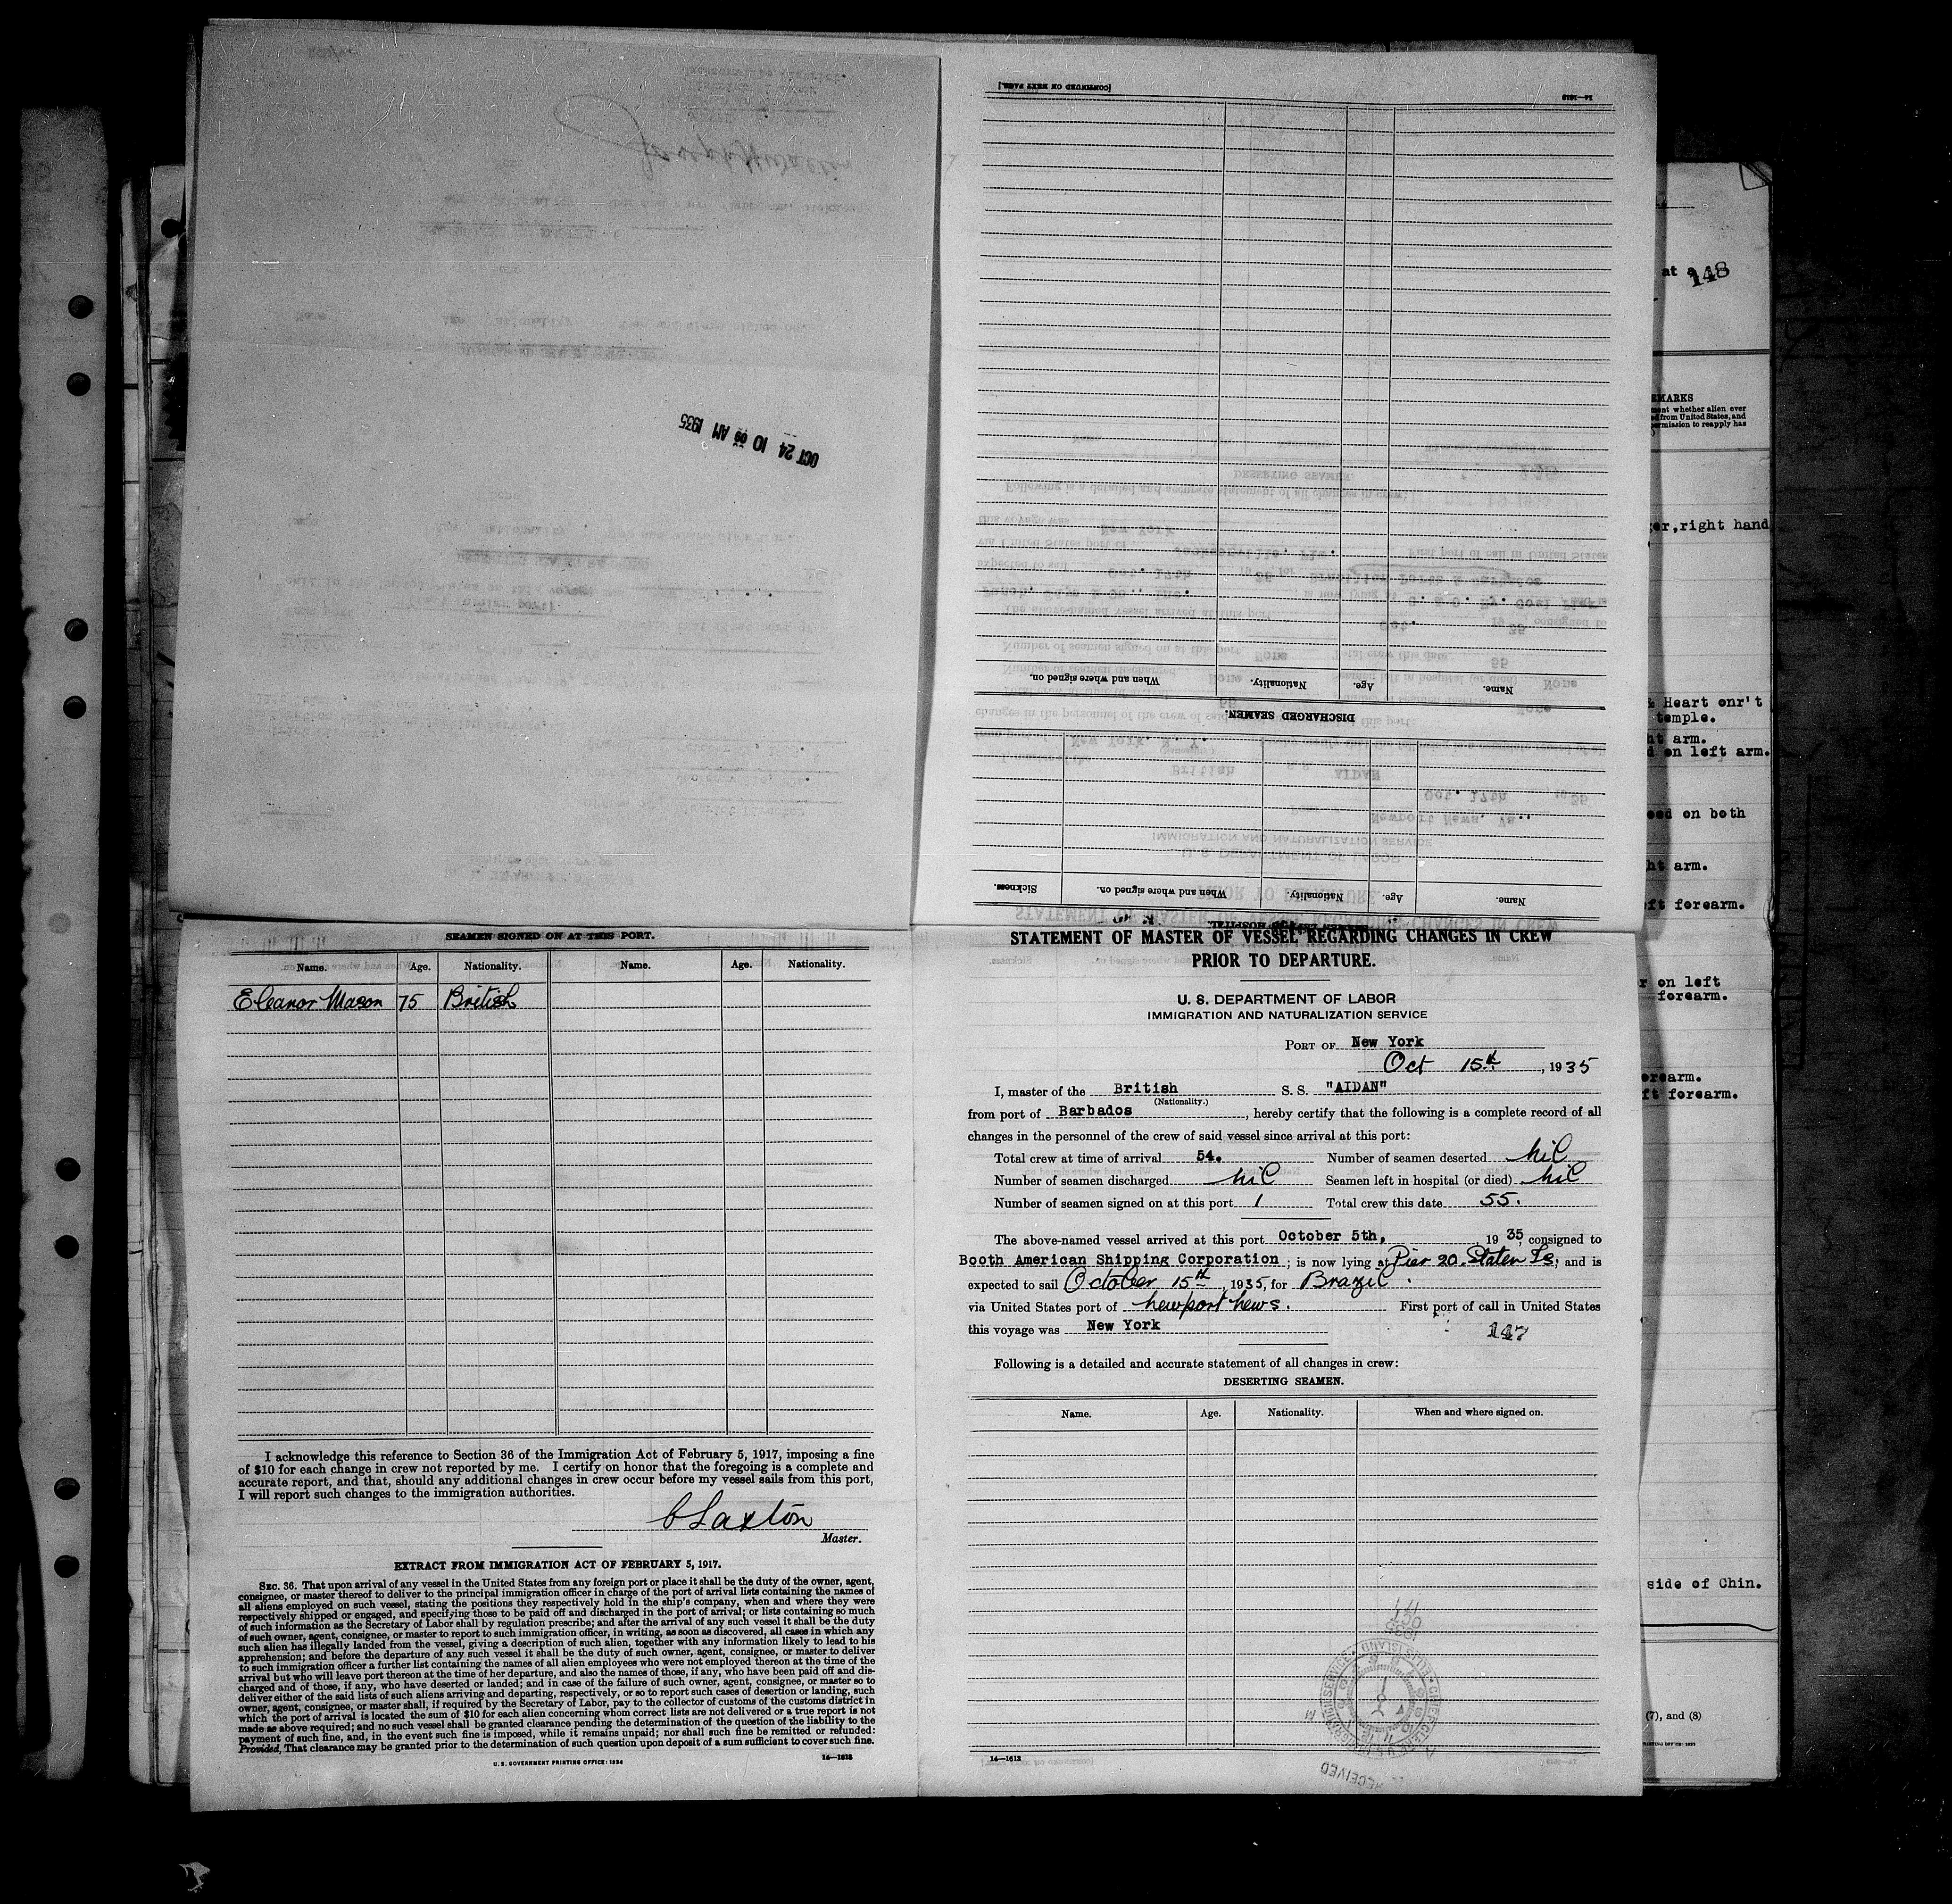 OCT 24 10 00 AM 1935
[CONTINUED ON NEXT PAGE.]
14—1613
When and where signed on. Nationality. Age. Name.
DISCHARGED SEAMEN.
Sickness. When and where signed on. Nationality. Age. Name.
at a
148
EMARKS
ment whether alien ever
ed from United States, and
permission to reapply has
er, right hand
& Heart onr't
temple.
ht arm.
d on left arm.
on both
ht arm.
ft forearm.
r on left
forearm.
orearm.
ft forearm.
side of Chin.
(7), and (8)
SEAMEN SIGNED ON AT THIS PORT.
Name. Age. Nationality. Name. Age. Nationality.
Eleanor Mason 75 British
I acknowledge this reference to Section 36 of the Immigration Act of February 5, 1917, imposing a fine
of $10 for each change in crew not reported by me. I certify on honor that the foregoing is a complete and
accurate report, and that, should any additional changes in crew occur before my vessel sails from this port,
I will report such changes to the immigration authorities.
C Laxton
Master.
EXTRACT FROM IMMIGRATION ACT OF FEBRUARY 5, 1917.
SEC. 36. That upon arrival of any vessel in the United States from any foreign port or place it shall be the duty of the owner, agent,
consignee, or master thereof to deliver to the principal immigration officer in charge of the port of arrival lists containing the names of
all aliens employed on such vessel, stating the positions they respectively hold in the ship's company, when and where they were
respectively shipped or engaged, and specifying those to be paid off and discharged in the port of arrival; or lists containing so much
of such information as the Secretary of Labor shall by regulation prescribe; and after the arrival of any such vessel it shall be the duty
of such owner, agent, consignee, or master to report to such immigration officer, in writing, as soon as discovered, all cases in which any
such alien has illegally landed from the vessel, giving a description of such alien, together with any information likely to lead to his
apprehension; and before the departure of any such vessel it shall be the duty of such owner, agent, consignee, or master to deliver
to such immigration officer a further list containing the names of all alien employees who were not employed thereon at the time of the
arrival but who will leave port thereon at the time of her departure, and also the names of those, if any, who have been paid off and dis-
charged and of those, if any, who have deserted or landed; and in case of the failure of such owner, agent, consignee, or master so to
deliver either of the said lists of such aliens arriving and departing, respectively, or so to report such cases of desertion or landing, such
owner, agent, consignee, or master shall, if required by the Secretary of Labor, pay to the collector of customs of the customs district in
which the port of arrival is located the sum of $10 for each alien concerning whom correct lists are not delivered or a true report is not
made as above required; and no such vessel shall be granted clearance pending the determination of the question of the liability to the
payment of such fine, and, in the event such fine is imposed, while it remains unpaid; nor shall such fine be remitted or refunded:
Provided, That clearance may be granted prior to the determination of such question upon deposit of a sum sufficient to cover such fine.
U. S. GOVERNMENT PRINTING OFFICE: 1934
14—1613
STATEMENT OF MASTER OF VESSEL REGARDING CHANGES IN CREW
PRIOR TO DEPARTURE.
U. S. DEPARTMENT OF LABOR
IMMIGRATION AND NATURALIZATION SERVICE
PORT OF New York
Oct 15th, 1935
I, master of the British S. S. "AIDAN"
(Nationality.)
from port of Barbados, hereby certify that the following is a complete record of all
changes in the personnel of the crew of said vessel since arrival at this port:
Total crew at time of arrival 54. Number of seamen deserted nil
Number of seamen discharged nil Seamen left in hospital (or died) nil
Number of seamen signed on at this port 1 Total crew this date 55.
The above-named vessel arrived at this port October 5th, 1935, consigned to
Booth American Shipping Corporation; is now lying at Pier 20. Staten Is, and is
expected to sail October 15th, 1935, for Brazil.
via United States port of Newport News. First port of call in United States
this voyage was New York
147
Following is a detailed and accurate statement of all changes in crew:
DESERTING SEAMEN.
Name. Age. Nationality. When and where signed on.
1935
OCT
14—1613
RECEIVED